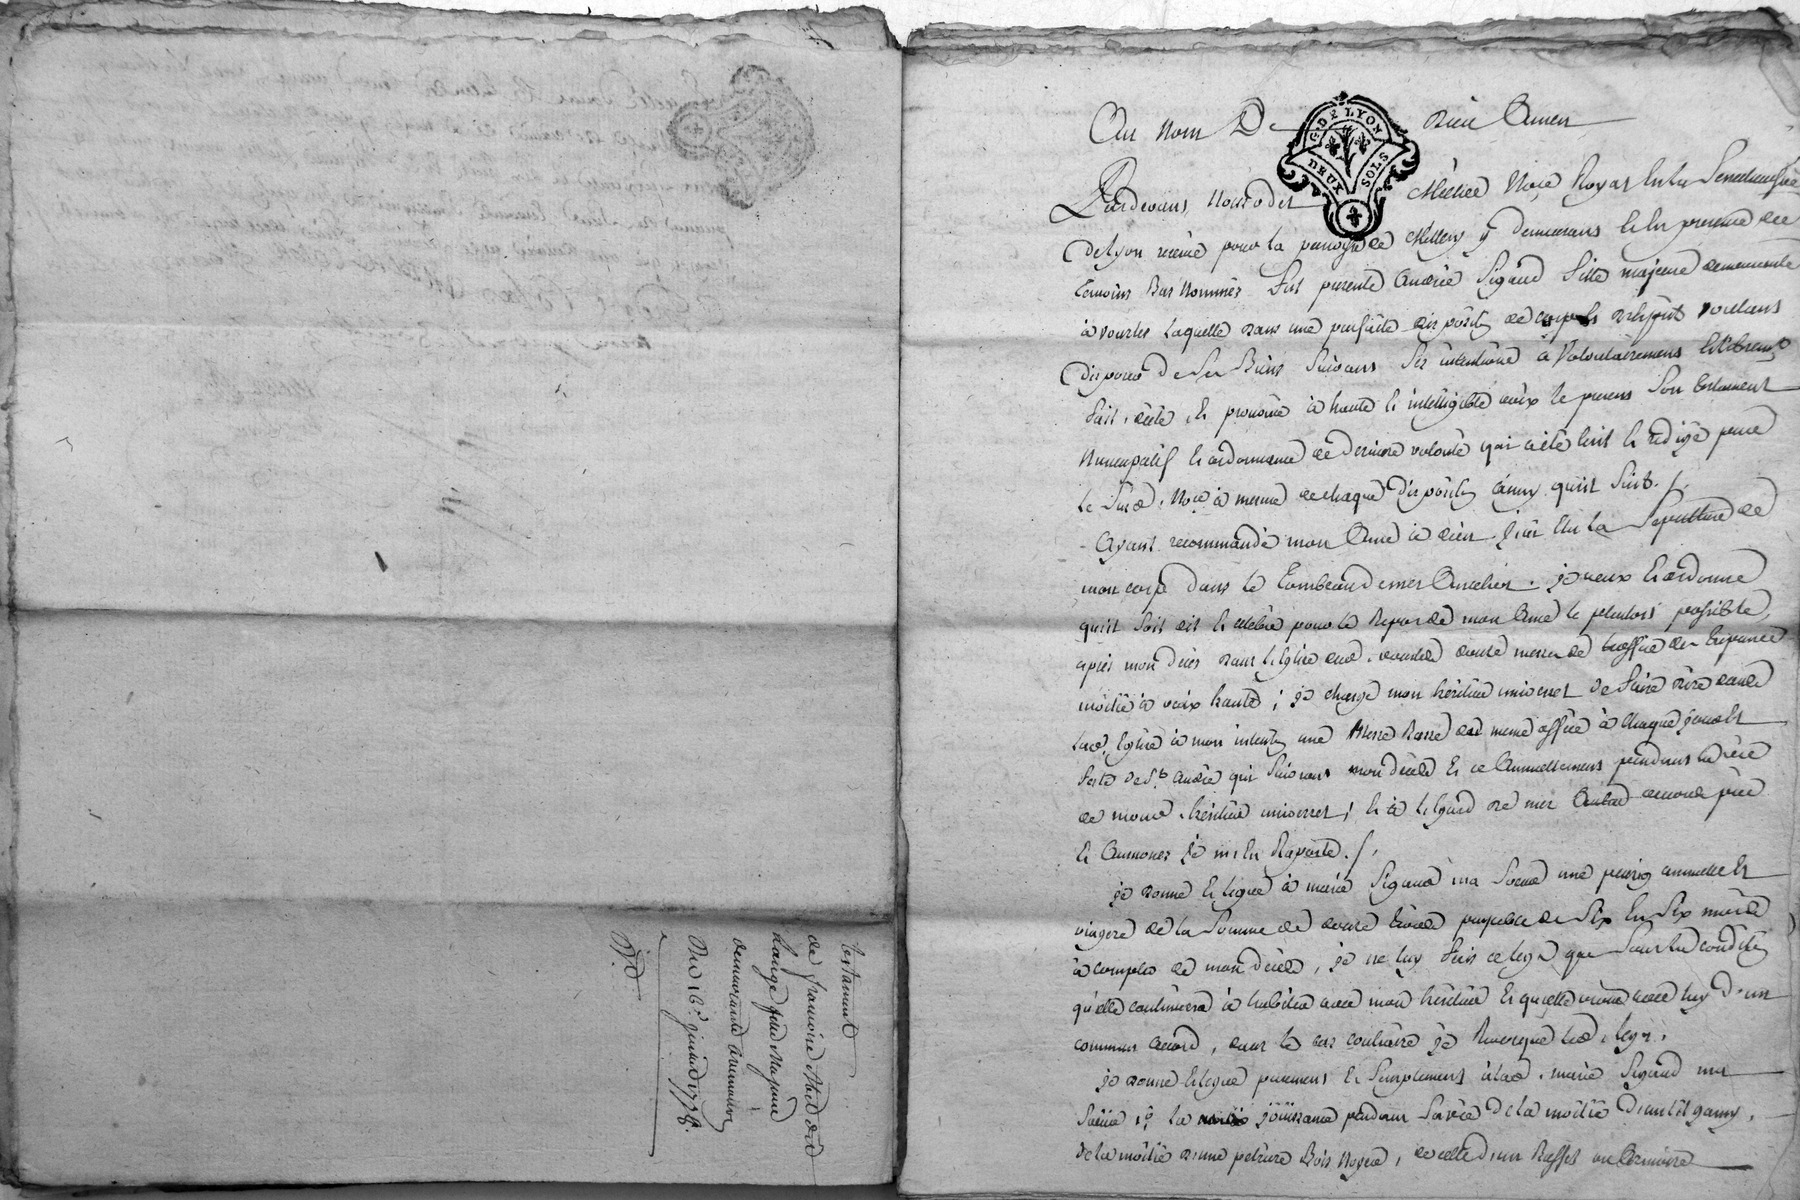 testament
de francoise
fille Majeure
demeurante
Du 16e. 1778.
Au Nom De Dieu Amen
G. DE LYON
DEUX SOLS
Pardevant Nore Royal en la Senechaussée
de Lyon reservé pour la paroisse de Millery y demeurant et en presence des
temoins Bas Nommés fut presente Andrée Sigaud fille majeure demeurante
à vourles laquelle dans une parfaite disposity de corps et desprit voulant
disposer de ses Biens suivant ses intentions à Volontairement et librement
fait, dicté et prononcé à haute et intelligible voix le present Son testament
Nuncupatif et ordonnance de derniere volonté qui a été ecrit et redigé par
le Sud. Nore à mesure de chaque disposity ainsy quil Suit. /.
Ayant recommandé mon Ame à dieu, la Sepulture de
mon corps dans le Tombeau de mes Ancetres. je veux et ordonne
quil soit dit et celebré pour le Repos de mon Ame le plustost possible,
après mon décès dans l'Eglise dud. vourles douze messes de
moitié à voix haute ; je charge mon héritier universel de faire dire dans
lad. Eglise à mon intenty une Messe Basse du meme office à chaque jour et
feste de St. André qui suivront mon décès et ce Annuellement pendant la vie
de mond. héritier universel ; et à l'égard de mes Autres œuvres pies
et Aumones je m'en Raporte. /.
je donne et legue à marie Sigaud ma Soeur une pensig annuelle et
viagere de la Somme de douze livres payable de Six en Six mois
à compter de mon décès, je ne luy fais ce legs que sous la condity
qu'elle continuera à habiter avec mon héritier et qu'elle vivra avec luy d'un
commun accord, dans le cas contraire je Revoque led. legs.
je donne et legue purement et Simplement à lad. marie Sigaud ma
Soeur 1o. la jouissance pendant Sa vie de la moitié d'un lit garny,
de la moitié d'une petriere Bois Noyer, et celle d'un Buffet ou Armoire